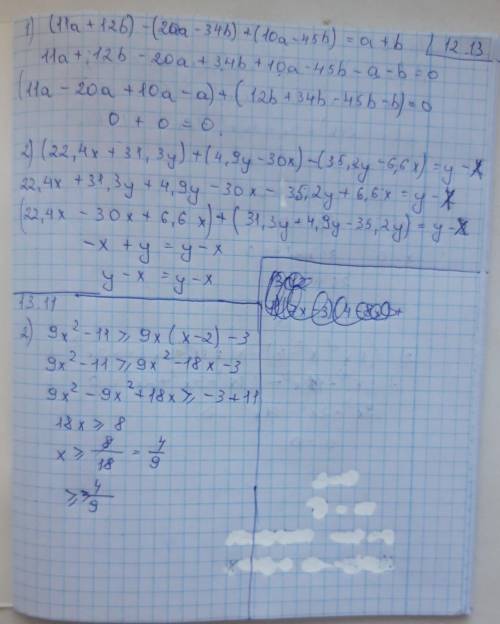 1) (11a + 12b) - (20a - 34b) + (10a - 45b) = a + b
12.13
11a + 12b - 20a + 34b + 10a - 45b - a - b = 0
(11a - 20a + 10a - a) + (12b + 34b - 45b - b) = 0
0 + 0 = 0.
2) (22,4x + 31,3y) + (4,9y - 30x) - (35,2y - 6,6x) = y - x
22,4x + 31,3y + 4,9y - 30x - 35,2y + 6,6x = y - x
(22,4x - 30x + 6,6x) + (31,3y + 4,9y - 35,2y) = y - x
-x + y = y - x
y - x = y - x
13.11
2) 9x² - 11 ≥ 9x (x - 2) - 3
9x² - 11 ≥ 9x² - 18x - 3
9x² - 9x² + 18x ≥ -3 + 11
18x ≥ 8
x ≥ 8/18 = 4/9
≥ 4/9